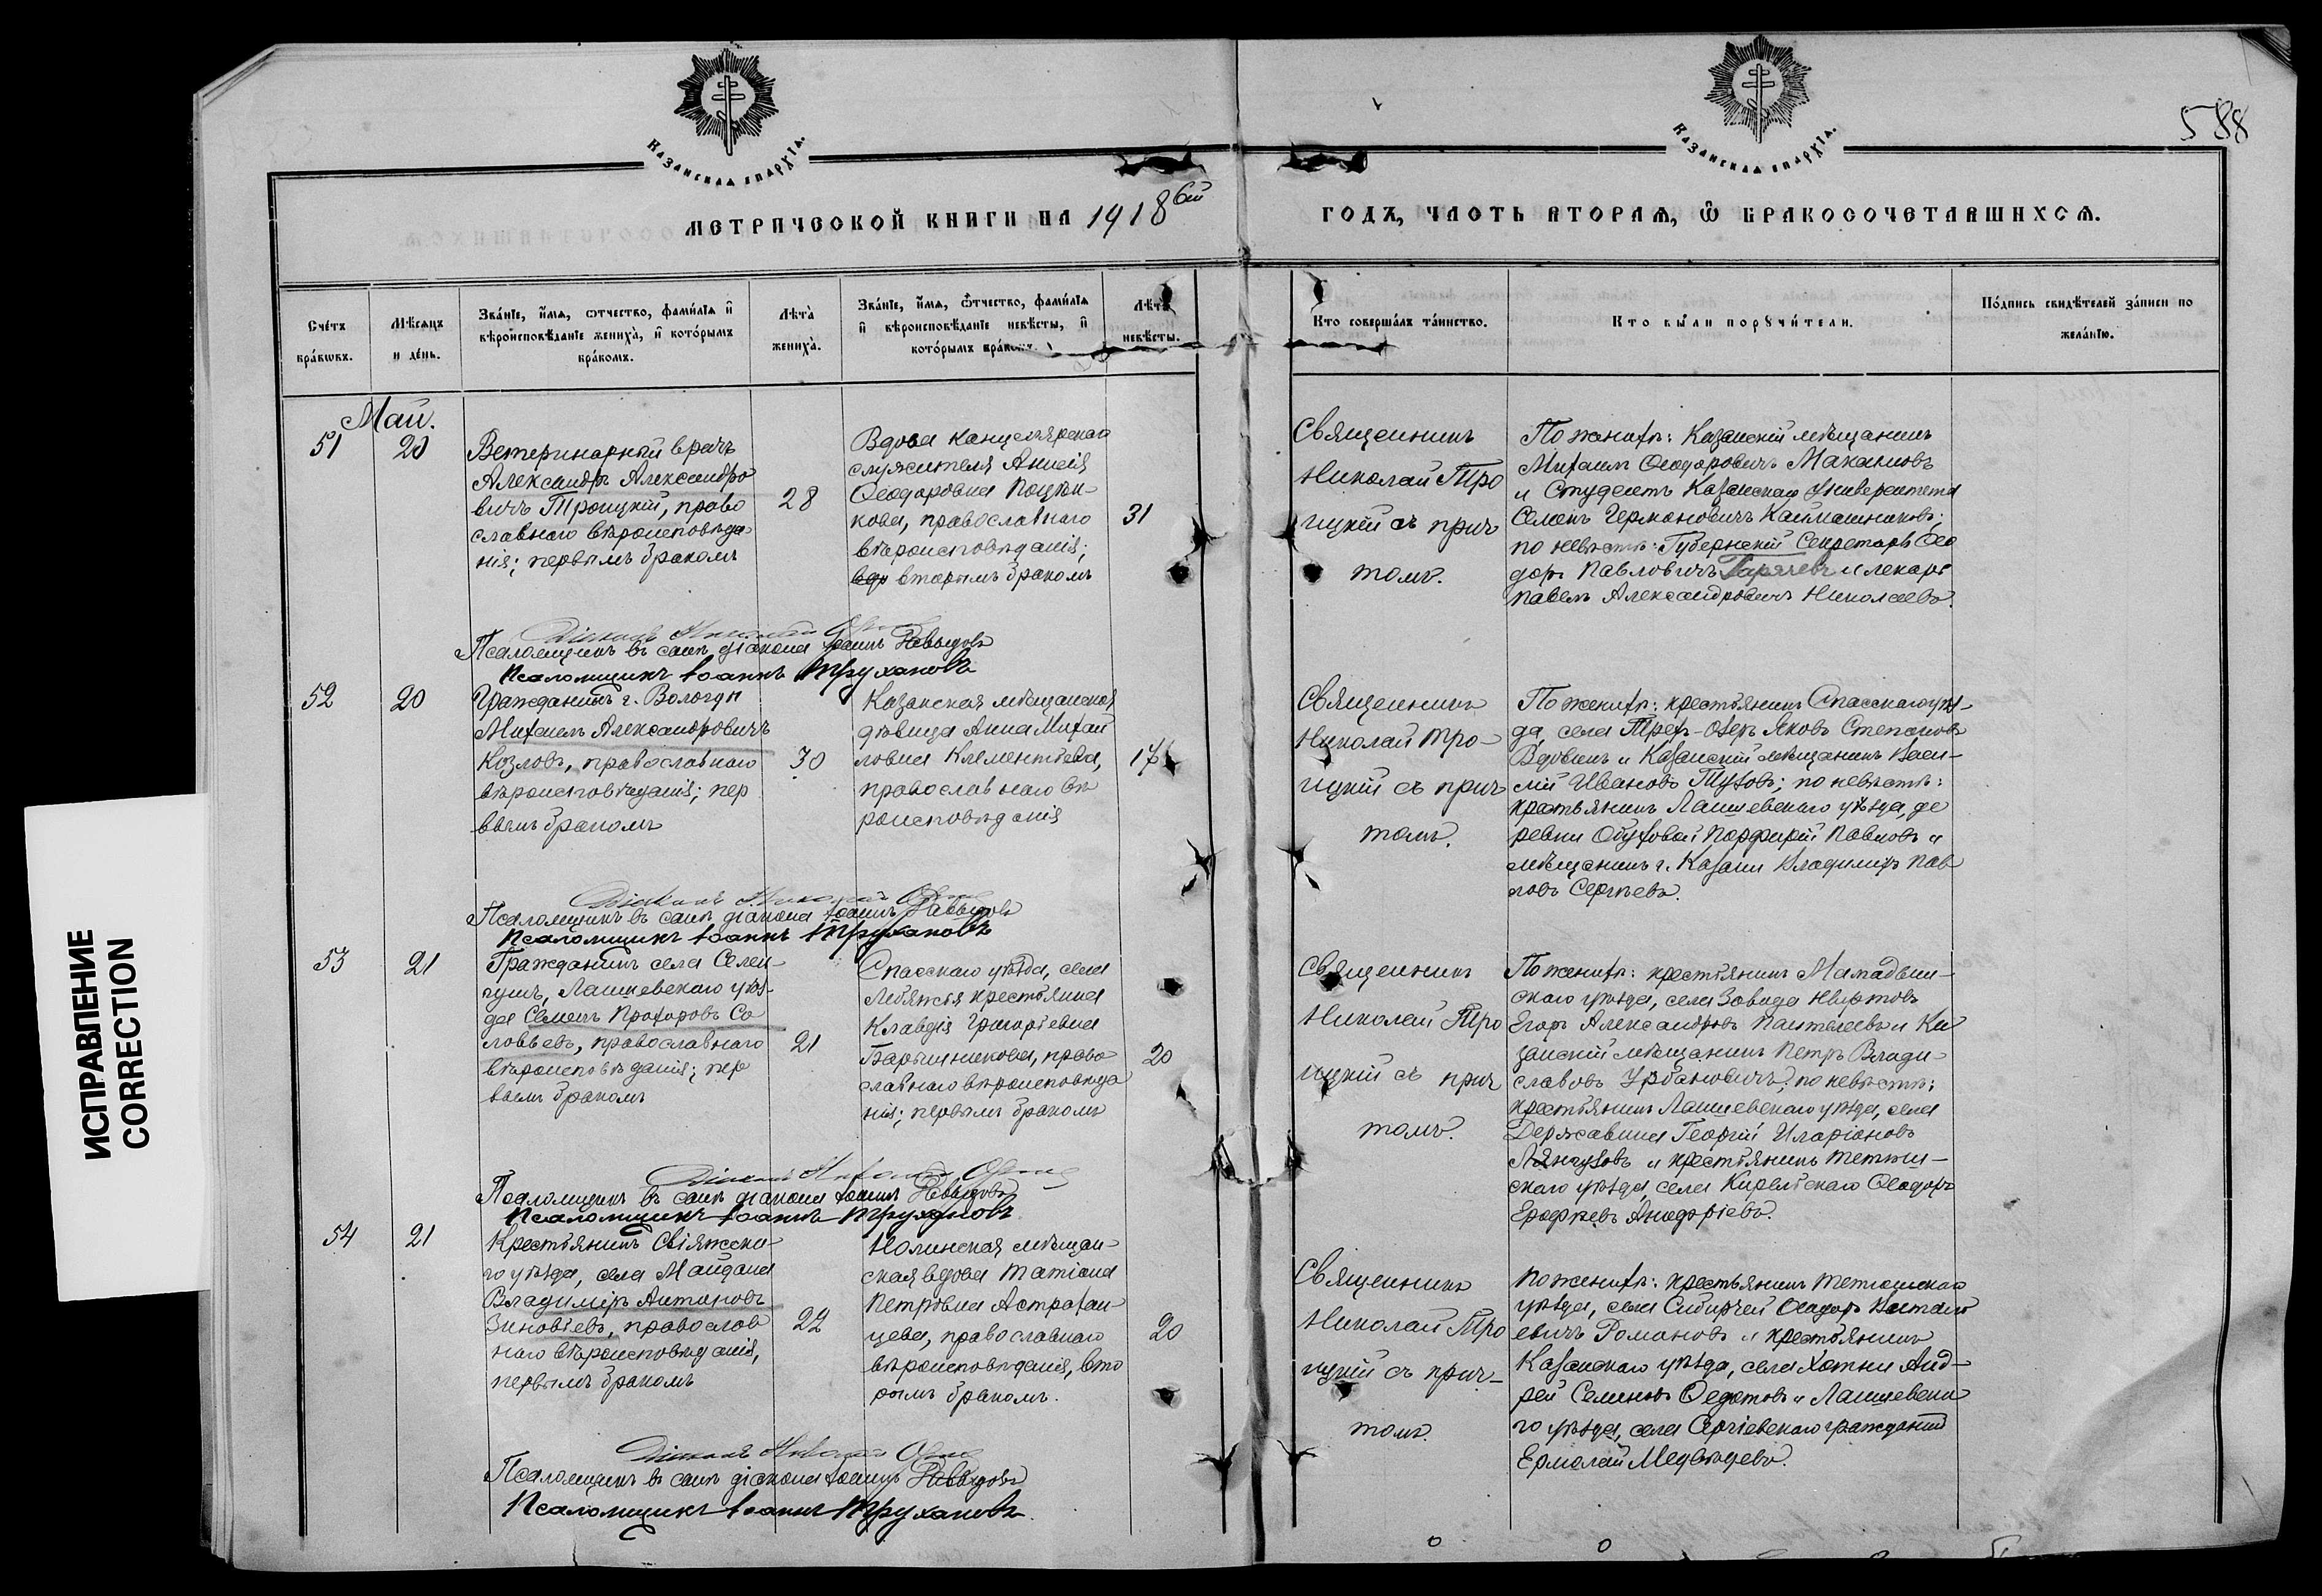 КАЗАНСКАѦ ЕПАРХЇѦ.
КАЗАНСКАѦ ЕПАРХЇѦ.
588
МЕТРИЧЕСКОЙ КНИГИ НА 1918 ой
ГОДЪ, ЧАСТЬ ВТОРАѦ, Ѿ БРАКОСОЧЕТАВШИХСѦ.
Счётъ браковъ.
Мѣсяцъ и день.
Званїе, имѧ, отчество, фамилїѧ и вѣроисповѣданїе жениха, и которымъ бракомъ.
Лѣта жениха.
Званїе, имѧ, отчество, фамилїѧ и вѣроисповѣданїе невѣсты, и которымъ бракомъ.
Лѣта невѣсты.
Кто совершалъ таинство.
Кто были поручители.
Подпись свидѣтелей записи по желанїю.
Май.
51
20
Ветеринарный врачъ
Александръ Александро
вичъ Троицкій, право
славнаго вѣроисповѣда
нія; первымъ бракомъ
28
Вдова канцелярскаго
служителя Анисія
Ѳеодоровна
кова, православнаго
вѣроисповѣданія;
вторымъ бракомъ
31
Священникъ
Николай Тро
ицкій съ прич
томъ.
По женихѣ: Казанскій мѣщанинъ
Михаилъ Ѳеодоровичъ Макановъ
и Студентъ Казанскаго Университета
Семенъ Германовичъ Каймашниковъ;
по невѣстѣ: Губернскій Секретарь Ѳео
доръ Павловичъ Горячевъ и лекарь
Павелъ Александровичъ Николаевъ.
Діаконъ Николай
Псаломщикъ въ санѣ діакона Іоаннъ Давыдовъ
Псаломщикъ Іоаннъ Трухановъ
52
20
Гражданинъ г. Вологды
Михаилъ Александровичъ
Козловъ, православнаго
вѣроисповѣданія; пер
вымъ бракомъ
30
Казанская мѣщанская
дѣвица Анна Михай
ловна Клементьева,
православнаго вѣ
роисповѣданія
17
Священникъ
Николай Тро-
ицкій съ прич
томъ.
По женихѣ: крестьянинъ Спасскаго уѣз-
да, села Трехъ-Озеръ Яковъ Степановъ
Вдовинъ и Казанскій мѣщанинъ Васи-
лій Ивановъ Тузовъ; по невѣстѣ:
крестьянинъ Лаишевскаго уѣзда, де
ревни Обуховой Порфирій Павловъ и
мѣщанинъ г. Казани Владимиръ Пав
ловъ Сергѣевъ.
Діаконъ Николай
Псаломщикъ въ санѣ діакона Іоаннъ Давыдовъ
Псаломщикъ Іоаннъ Трухановъ
53
21
Гражданинъ села Селен-
гушъ, Лаишевскаго уѣз-
да Семенъ Прохоровъ Со
ловьевъ, православнаго
вѣроисповѣданія; пер
вымъ бракомъ
21
Спасскаго уѣзда, села
Лебяжья крестьянка
Клавдія Григорьевна
Барышникова, право
славнаго вѣроисповѣда
нія; первымъ бракомъ
20
Священникъ
Николай Тро
ицкій съ прич
томъ.
По женихѣ: крестьянинъ Мамадыш-
скаго уѣзда, села
Егоръ Александровъ Пантелеевъ и Ка
занскій мѣщанинъ Петръ Влади-
славовъ Урбановичъ; по невѣстѣ:
крестьянинъ Лаишевскаго уѣзда, села
Державина Георгій Иларіоновъ
и крестьянинъ Тетюш-
скаго уѣзда, села Кирельскаго Ѳеодоръ
Ерофѣевъ
Діаконъ Николай
Псаломщикъ въ санѣ діакона Іоаннъ Давыдовъ
Псаломщикъ Іоаннъ Трухановъ
54
21
Крестьянинъ Свіяжска-
го уѣзда, села Майдана
Владиміръ Антоновъ
Зиновьевъ, православ
наго вѣроисповѣданія,
первымъ бракомъ
22
Нолинская мѣщан-
ская вдова Татіана
Петровна Астрахан-
цева, православнаго
вѣроисповѣданія, вто
рымъ бракомъ.
20
Священникъ
Николай Тро
ицкій съ прич-
томъ.
По женихѣ: крестьянинъ Тетюшскаго
уѣзда, села Сибирчей Ѳеодоръ
евичъ Романовъ и крестьянинъ
Казанскаго уѣзда, села Хотни Анд-
рей Семеновъ Ѳедотовъ и Лаишевска
го уѣзда, села Сергіевскаго гражданинъ
Ермолай Медвѣдевъ.
Діаконъ Николай
Псаломщикъ въ санѣ діакона Іоаннъ Давыдовъ
Псаломщикъ Іоаннъ Трухановъ
ИСПРАВЛЕНИЕ
CORRECTION